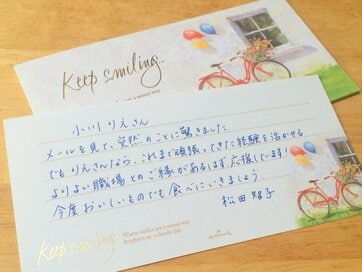 Keep smiling
小川りえさん
メールを見て、突然のことに驚きました
でもりえさんなら、これまで頑張ってきた経験を活かせる
よりよい職場とのご縁があるはず 応援しています!
今度おいしいものでも食べにいきましょう
松田智子
Keep smiling
Warm smiles are a sunny way
brighten up a cloudy day
Hallmark